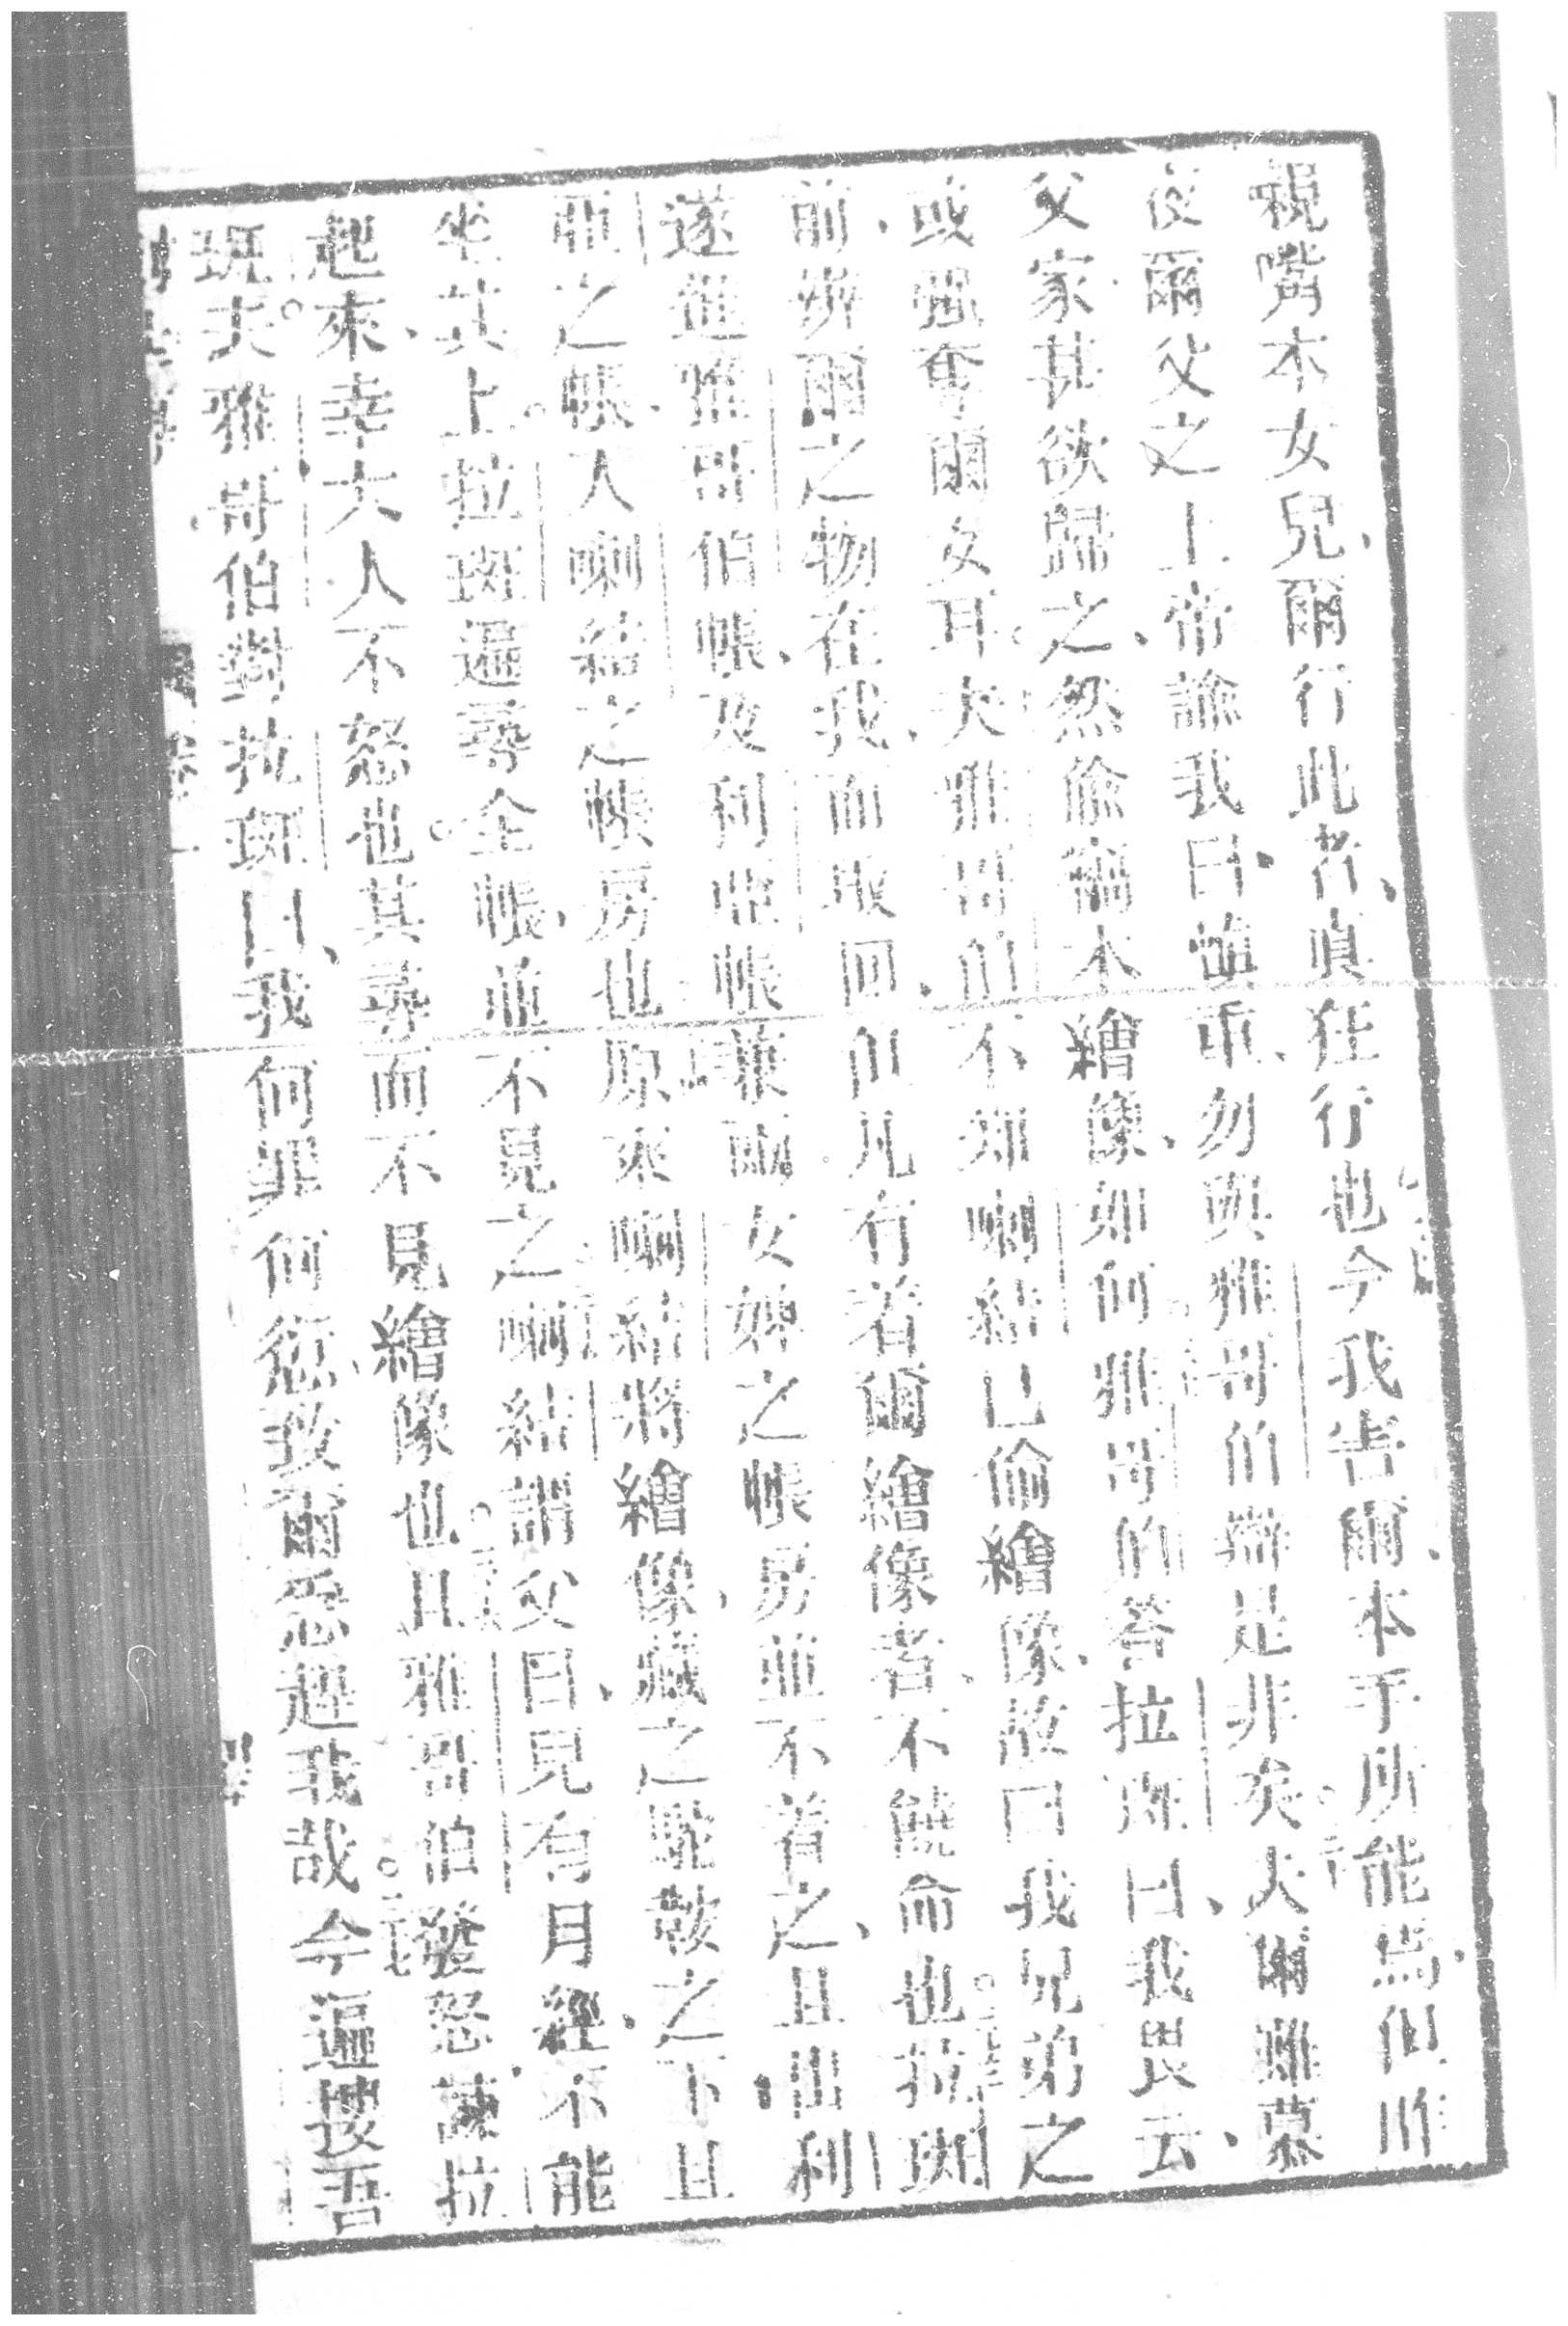 親嘴本女兒爾行此者真狂行也今我害爾本手所能為但昨
夜爾父之上帝諭我曰慎重勿與雅哥伯辯是非矣夫爾雖慕
父家甚欲歸之然偷竊本繪像如何雅哥伯答拉班曰我畏云
或強奪爾女耳夫雅哥伯不知喇結已偷繪像故曰我兄弟之
前辨爾之物在我而取回但凡有着爾繪像者不能命也拉班
遂進雅哥伯帳及利亞帳兼兩女婢之帳房並不着之且出利
亞之帳入喇結之帳房也原來喇結將繪像藏之駝鞍之下且
坐其上拉班遍尋全帳並不見之喇結謂父曰見有月經不能
起來幸大人不怒也其尋而不見繪像也且雅哥伯發怒讓拉
班夫雅哥伯對拉班曰我何罪何愆致爾急趕我哉今遍搜吾